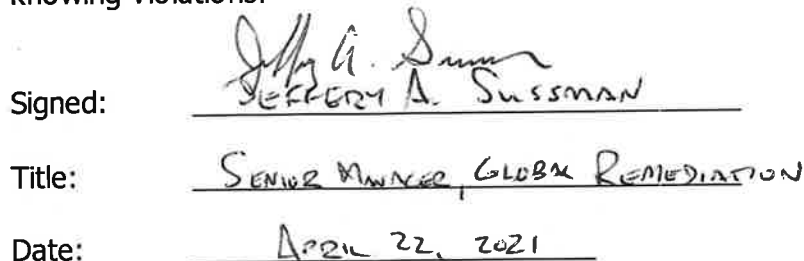 Knowing violations.
Jeffery A. Sussman
Signed: JEFFERY A. SUSSMAN
Title: SENIOR MANAGER, GLOBAL REMEDIATION
Date: APRIL 22, 2021